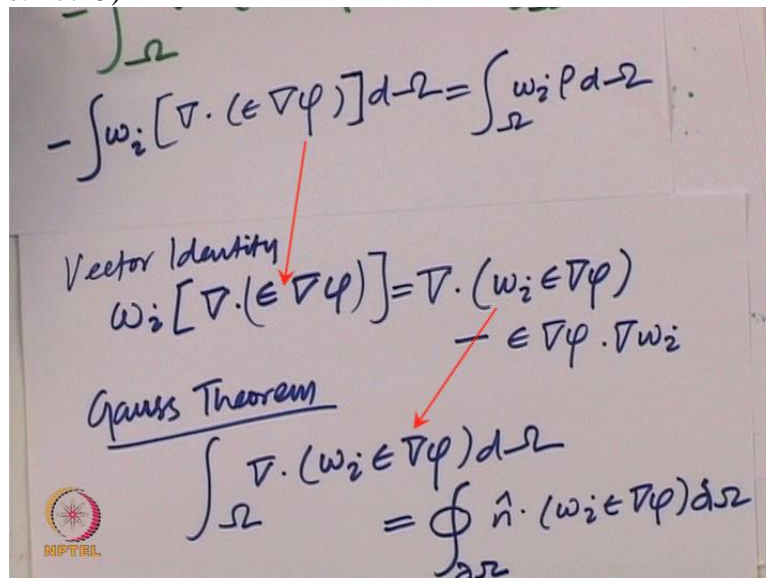 - ∫_Ω
- ∫ w_i [∇·(ϵ ∇φ)] dΩ = ∫_Ω w_i ρ dΩ
Vector Identity
w_i [∇·(ϵ ∇φ)] = ∇·(w_i ϵ ∇φ)
- ϵ ∇φ · ∇w_i
Gauss Theorem
∫_Ω ∇·(w_i ϵ ∇φ) dΩ
= ∮_∂Ω n̂·(w_i ϵ ∇φ) dΩ
NPTEL